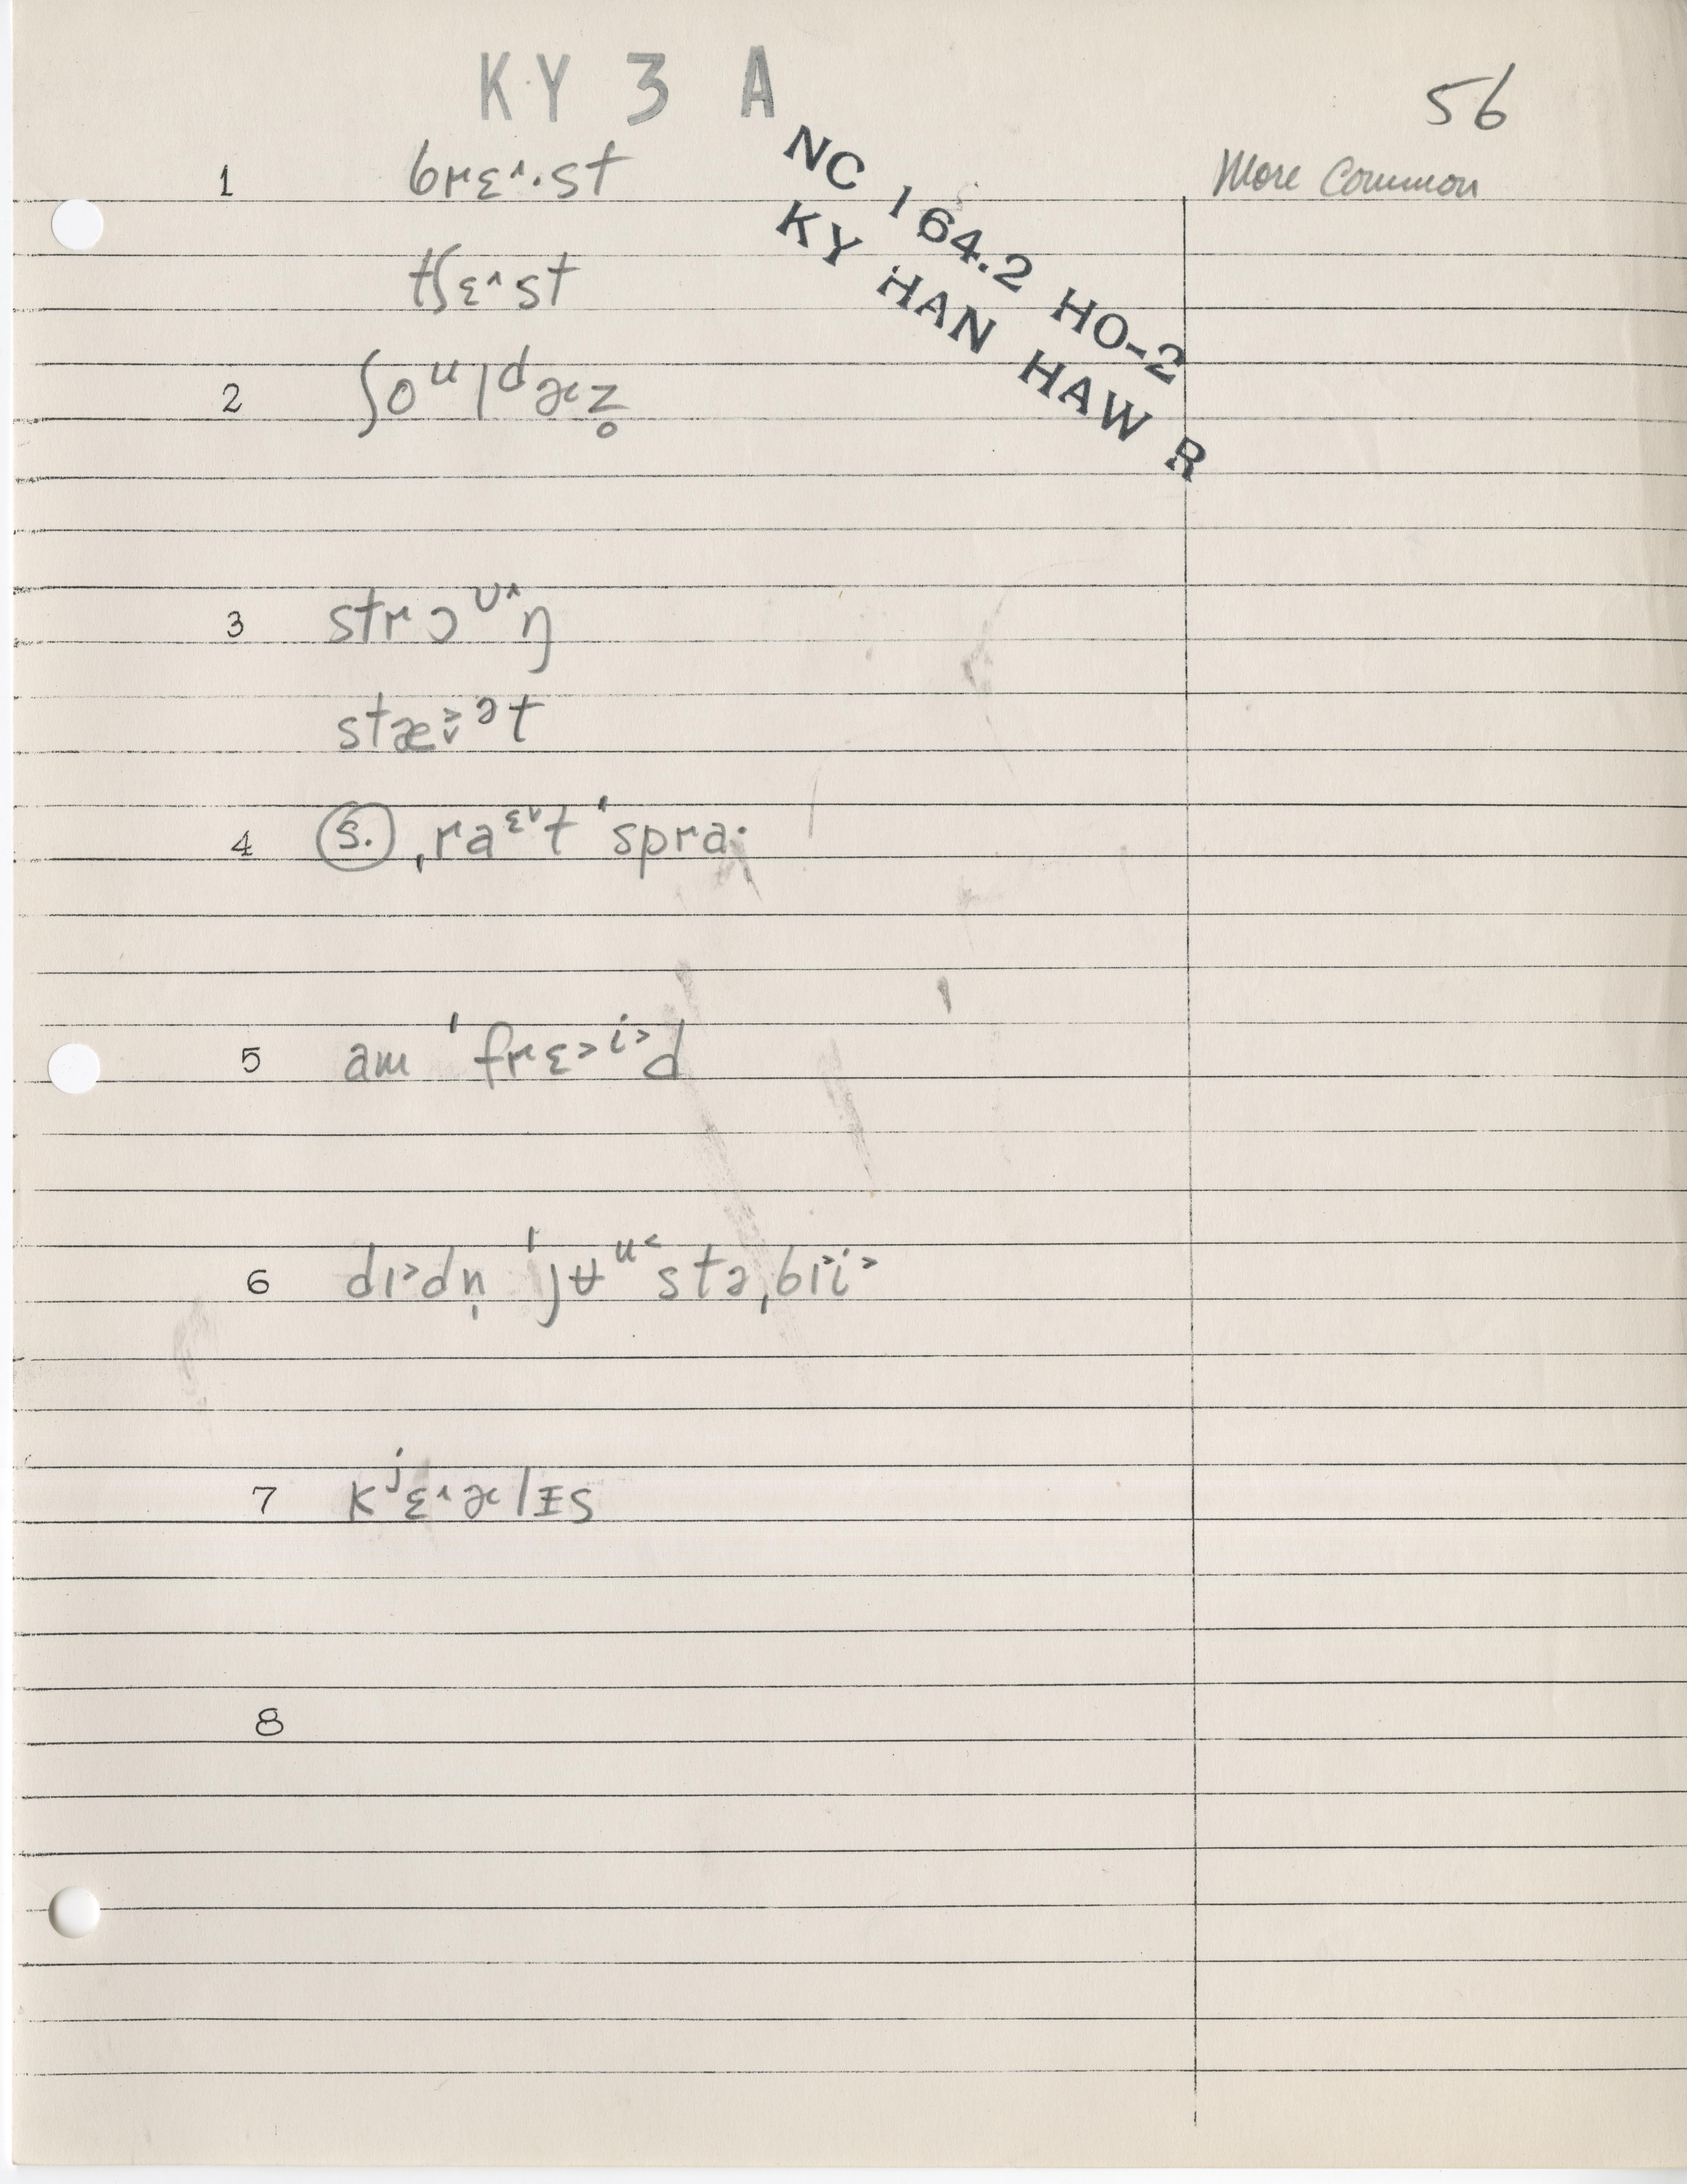 KY 3 A
56
NC 164.2 HO-2
KY HAN HAW R
More Common
1 brɛ˄·st
tʃɛ˄st
2 ʃoᵘldɚz̥
3 strɔᶷ˄ŋ
stæ˃˅ᵊt
4 (s.) ˌraᵋ˅t ˈspra·
5 am ˈfrɛ˃ⁱ˃d
6 dɪ˃dn̩ ˈjʉᵘ˂stəˌbɪ˃i˃
7 kʲɛ˄ɚlɪ̵s
8